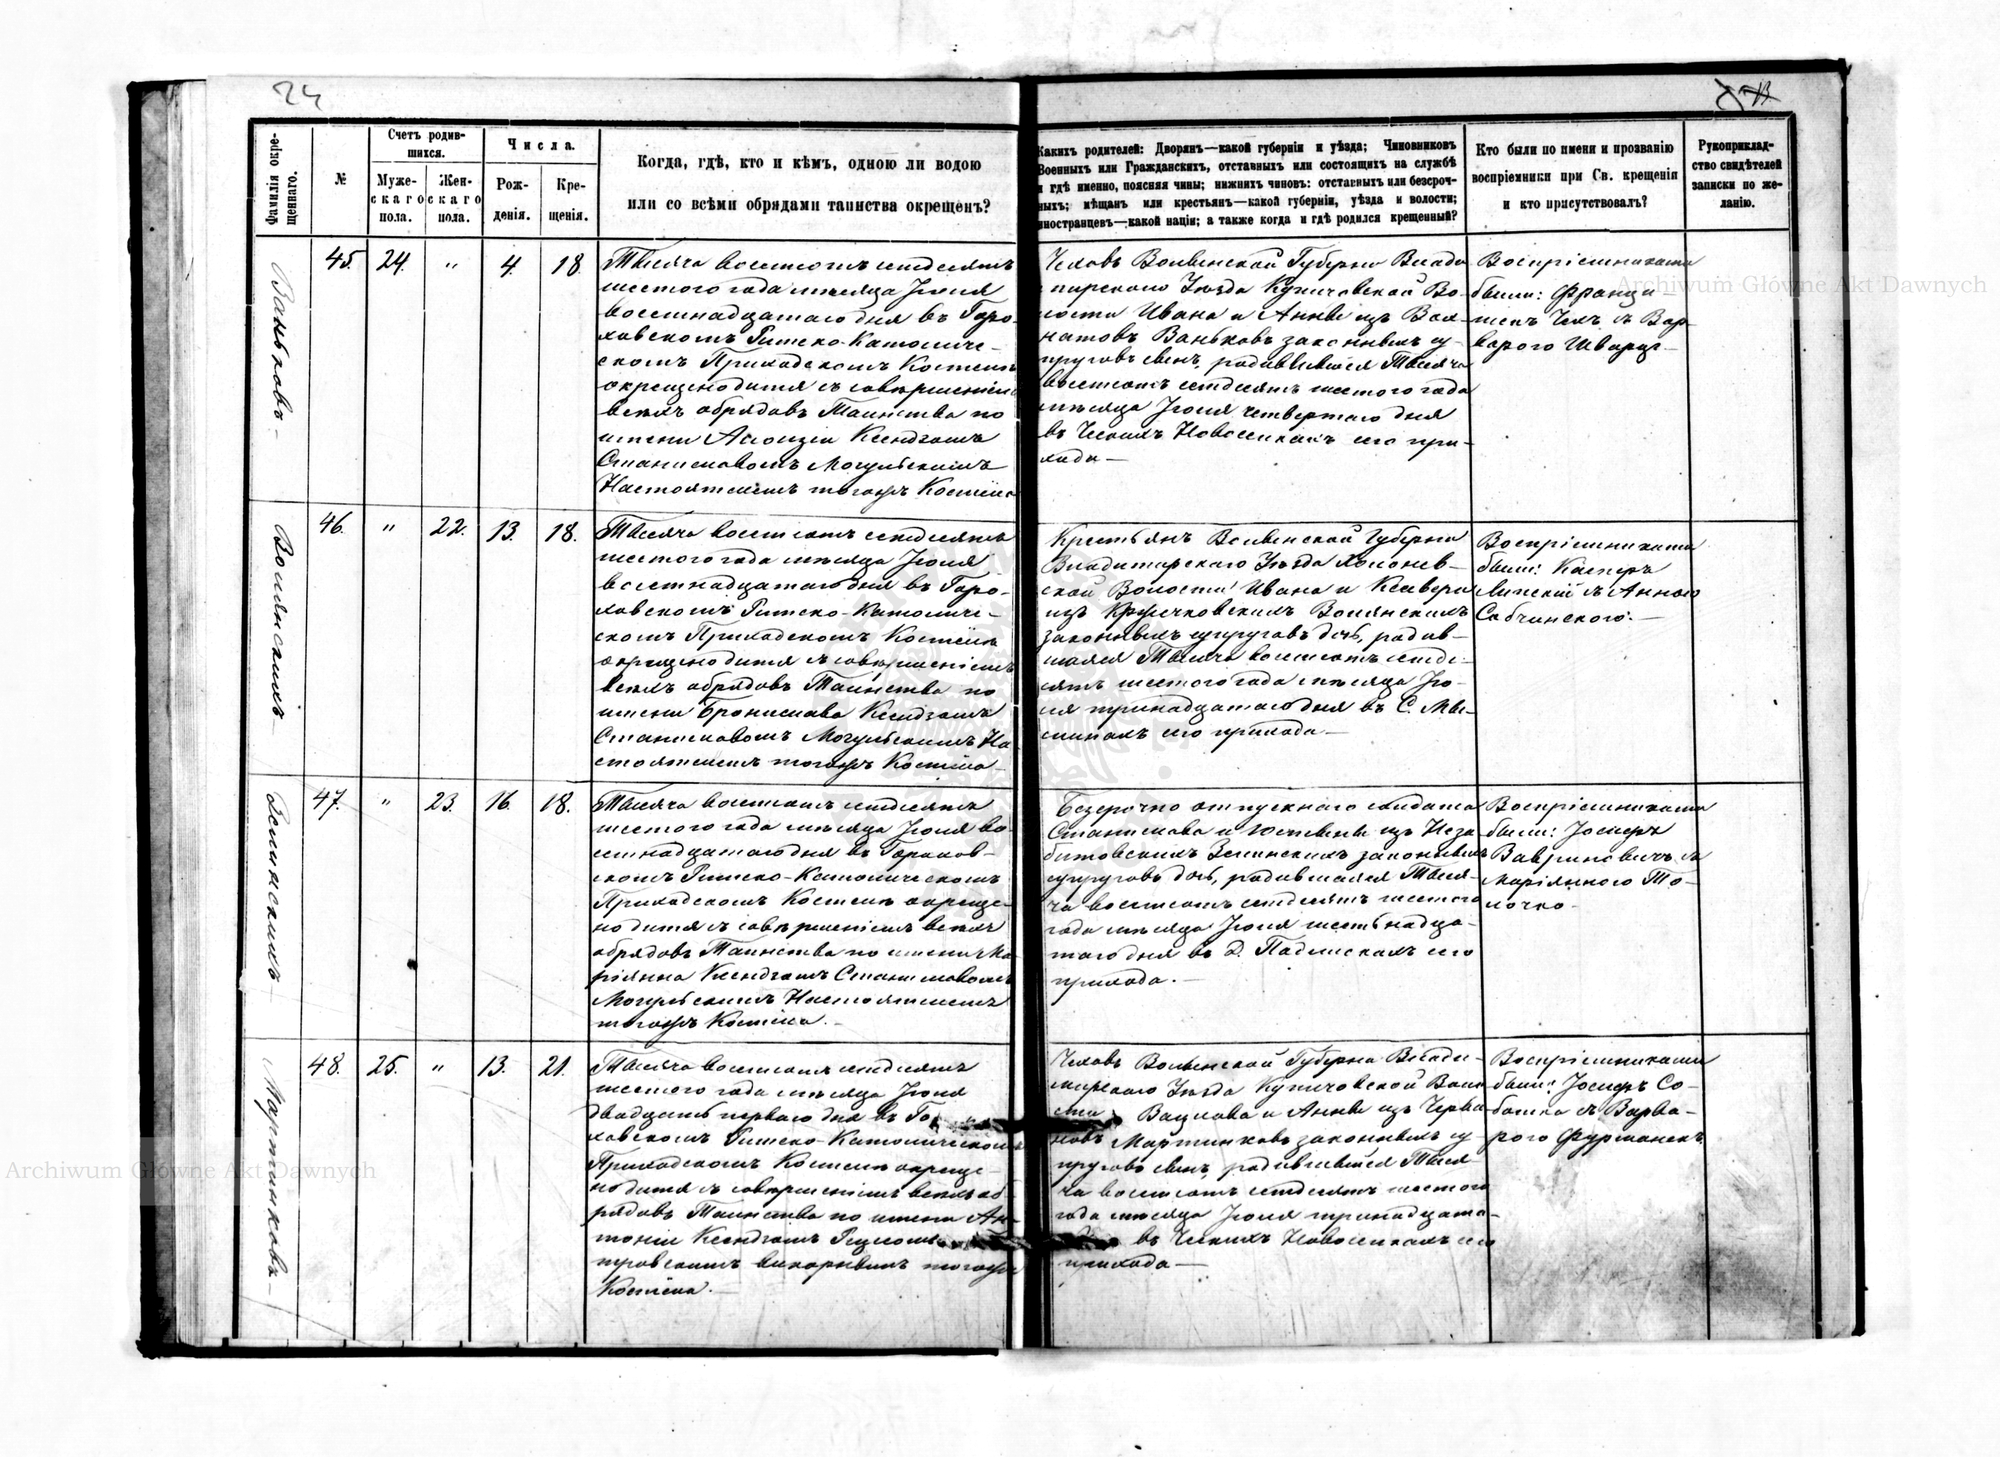 24
Фамилія окре-
щеннаго.
№
Счетъ родив-
шихся.
Муже-
скаго
пола.
Жен-
скаго
пола.
Числа.
Рож-
денія.
Кре-
щенія.
Когда, гдѣ, кто и кѣмъ, одною ли водою
или со всѣми обрядами таинства окрещенъ?
Каихъ родителей: Дворянъ—какой губерніи и уѣзда; Чиновниковъ
Военныхъ или Гражданскихъ, отставныхъ или состоящихъ на службѣ
и гдѣ именно, поясняя чины; нижнихъ чиновъ: отставныхъ или безсроч-
ныхъ; мѣщанъ или крестьянъ—какой губерніи, уѣзда и волости;
иностранцевъ—какой націи; а также когда и гдѣ родился крещенный?
Кто были по имени и прозванію
воспріемники при Св. крещеніи
и кто присутствовалъ?
Рукоприклад-
ство свидѣтелей
записки по же-
ланію.
Ваньковъ.—
45. 24. " 4. 18.
Тысяча восемьсотъ семдесятъ
шестого года мѣсяца Іюля
восемнадцатаго дня въ Горо-
ховскомъ Римско-Католиче-
скомъ Приходскомъ Костелѣ
окрещено дитя съ совершеніемъ
всѣхъ обрядовъ Таинства по
имени Алоизій Ксендзомъ
Станиславомъ Могульскимъ
Настоятелемъ тогожъ Костела
Чеховъ Волынской Губерніи Влади-
мирскаго Уѣзда Купичовской Во-
лости Ивана и Анны изъ
Ваньковъ законныхъ су-
пруговъ сынъ, родившійся Тысяча
восемьсотъ семдесятъ шестого года
мѣсяца Іюля четвертаго дня
въ Ческихъ Новоселкахъ сего при-
хода—
Воспріемниками
были: Франци-
шекъ Чехъ съ Вар-
варою Шварц—
Волянскихъ
46. " 22. 13. 18.
Тысяча восемьсотъ семдесятъ
шестого года мѣсяца Іюля
восемнадцатаго дня въ Горо-
ховскомъ Римско-Католиче-
скомъ Приходскомъ Костелѣ
окрещено дитя съ совершеніемъ
всѣхъ обрядовъ Таинства по
имени Бронислава Ксендзомъ
Станиславомъ Могульскимъ На-
стоятелемъ тогожъ Костела—
Крестьянъ Волынской Губерніи
Владимирскаго Уѣзда Хороhов-
ской Волости Ивана и Ксаверы
изъ Кружковскихъ Волянскихъ
законныхъ супруговъ дочь, родив-
шаяся Тысяча восемьсотъ семде-
сятъ шестого года мѣсяца Ію-
ля тринадцатаго дня въ С.
сего прихода.—
Воспріемниками
были: Касперъ
Липскій съ Анною
Сабчинского.—
Зелинскихъ
47. " 23. 16. 18.
Тысяча восемьсотъ семдесятъ
шестого года мѣсяца Іюля во-
семнадцатаго дня въ Горохов-
скомъ Римско-Католическомъ
Приходскомъ Костелѣ окреще-
но дитя съ совершеніемъ всѣхъ
обрядовъ Таинства по имени Ма-
ріянна Ксендзомъ Станиславомъ
Могульскимъ Настоятелемъ
тогожъ Костела.—
Безсрочно отпускнаго солдата
Станислава и Юстины изъ Неза-
битовскихъ Зелинскихъ законныхъ
супруговъ дочь, родившаяся Тыся-
ча восемьсотъ семдесятъ шестого
года мѣсяца Іюля шестьнадца-
таго дня въ Д. сего
прихода.—
Воспріемниками
были: Іосифъ
Вавриновичъ съ
Маріянною То-
лочко—
Мартинковъ—
48. 25. " 13. 21.
Тысяча восемьсотъ семдесятъ
шестого года мѣсяца Іюля
двадцать перваго дня въ Горо-
ховскомъ Римско-Католическомъ
Приходскомъ Костелѣ окреще-
но дитя съ совершеніемъ всѣхъ об-
рядовъ Таинства по имени Ан-
тоній Ксендзомъ
викарнымъ тогожъ
Костела.—
Чеховъ Волынской Губерніи Влади-
мирскаго Уѣзда Купичовской Воло-
сти Вацлава и Анны изъ
Мартинковъ законныхъ су-
пруговъ сынъ, родившійся Тыся-
ча восемьсотъ семдесятъ шестого
года мѣсяца Іюля тринадцата-
въ Ческихъ Новоселкахъ сего
прихода—
Воспріемниками
были: Іосифъ Со-
ботка съ Варва-
рого Фурманекъ
Archiwum Główne Akt Dawnych
Archiwum Główne Akt Dawnych